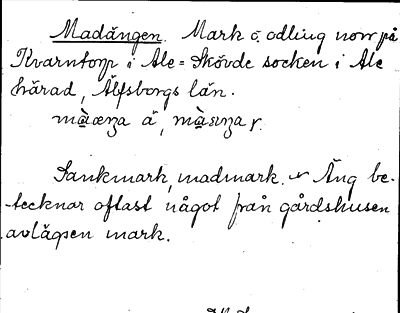 Madängen. Mark o. odling norr på
Kvarntorp i Ale-Skövde socken i Ale
härad, Älfsborgs län.
Sankmark, madmark. Äng be-
tecknar oftast något från gårdshusen
avlägsen mark.